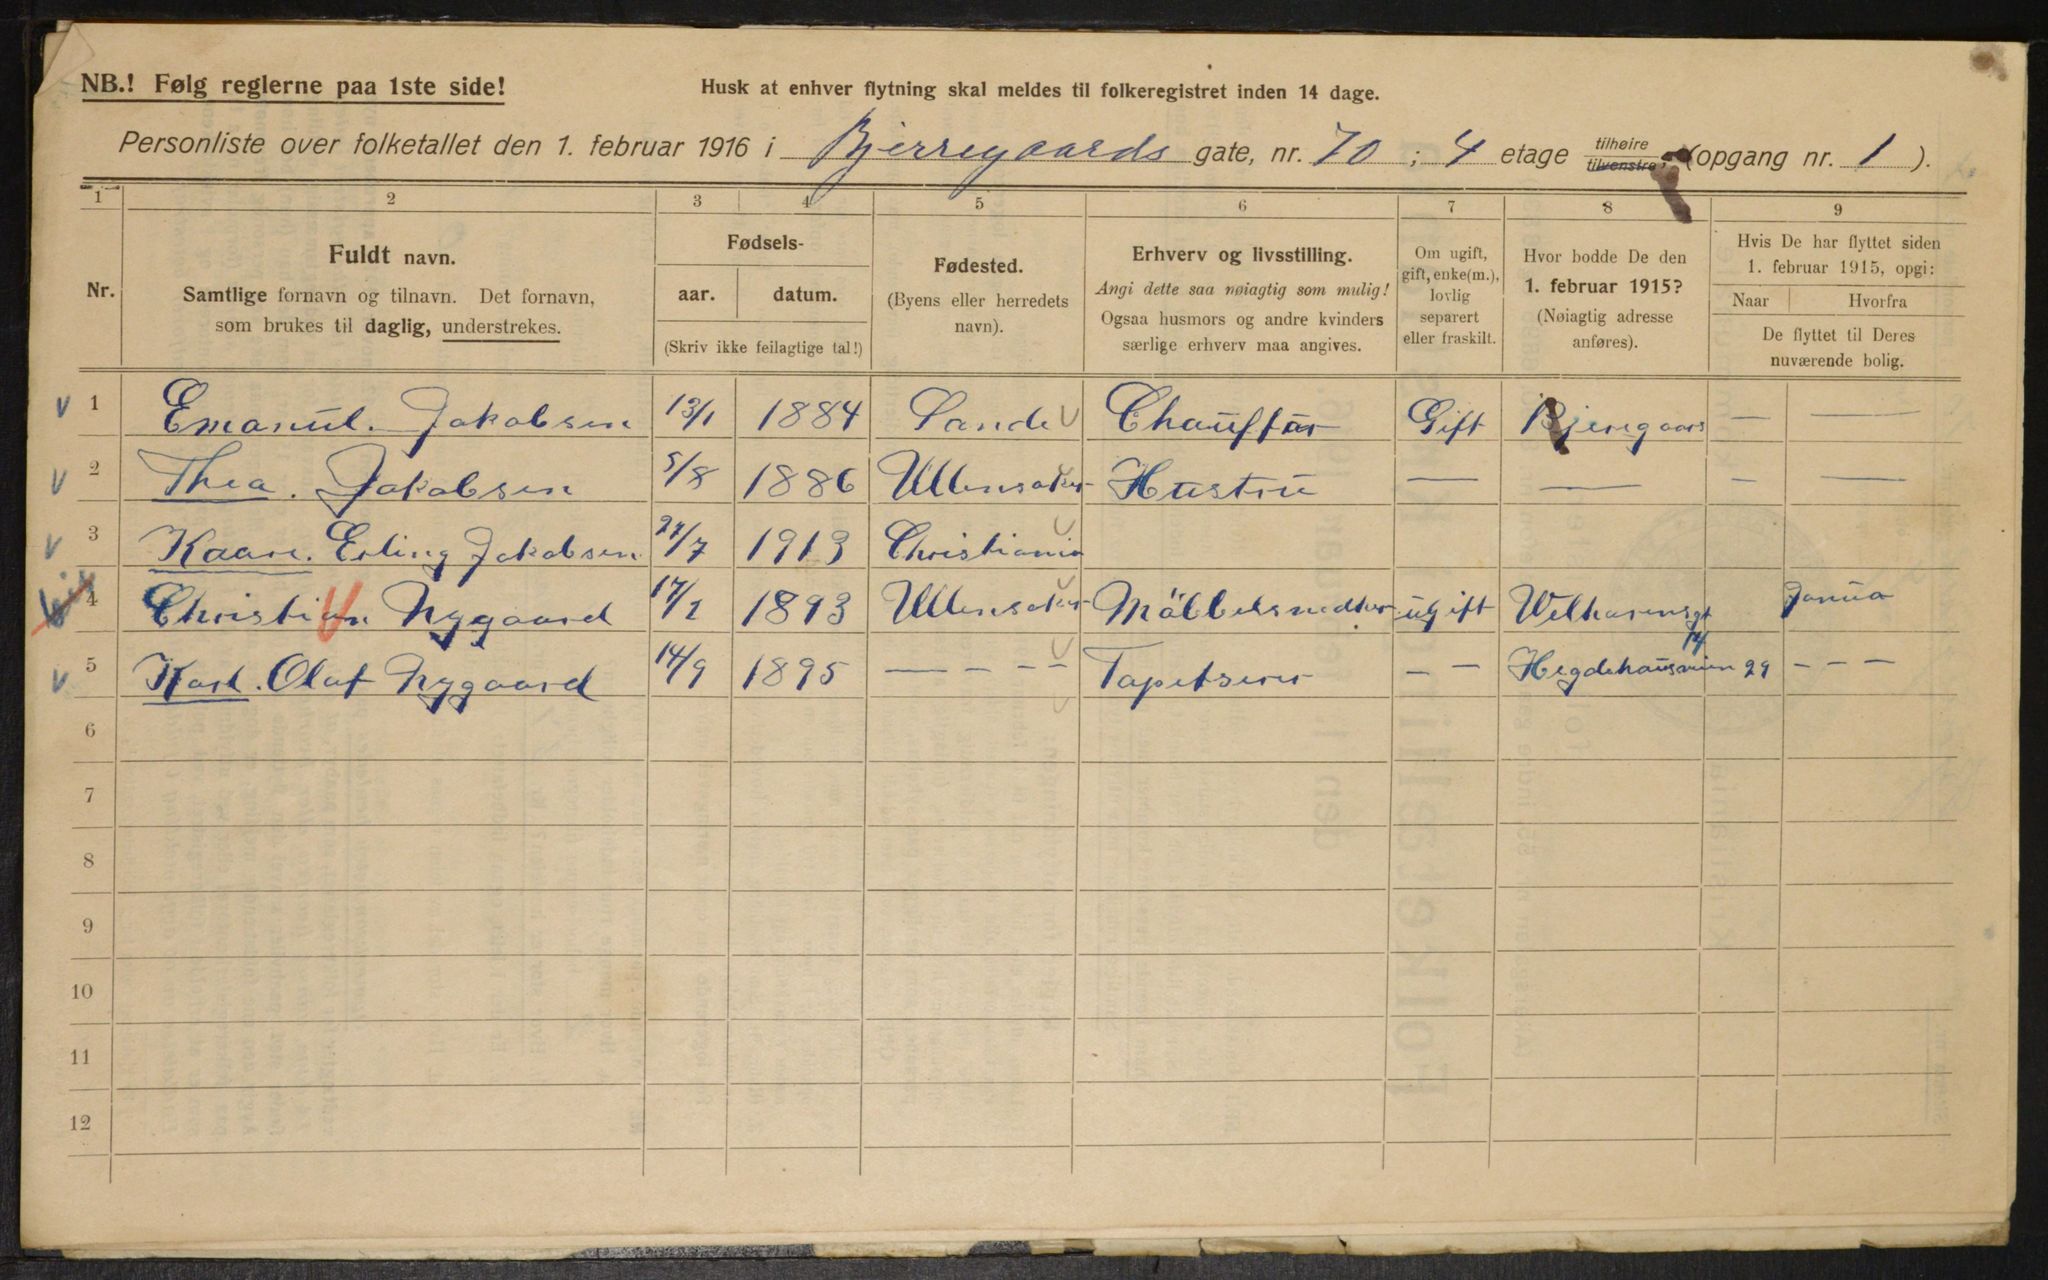 NB.! Følg reglerne paa 1ste side!
Husk at enhver flytning skal meldes til folkeregistret inden 14 dage.
Personliste over folketallet den 1. februar 1916 i Bjerregaards gate, nr. 70 ; 4 etage tilhøire tilvenstre, (opgang nr. 1 ).
1 2 3 4 5 6 7 8 9
Nr.
Fuldt navn.
Samtlige fornavn og tilnavn. Det fornavn,
som brukes til daglig, understrekes.
Fødsels-
aar. datum.
(Skriv ikke feilagtige tal!)
Fødested.
(Byens eller herredets
navn).
Erhverv og livsstilling.
Angi dette saa nøiagtig som mulig!
Ogsaa husmors og andre kvinders
særlige erhverv maa angives.
Om ugift,
gift, enke(m.),
lovlig
separert
eller fraskilt.
Hvor bodde De den
1. februar 1915?
(Nøiagtig adresse
anføres).
Hvis De har flyttet siden
1. februar 1915, opgi:
Naar Hvorfra
De flyttet til Deres
nuværende bolig.
1 Emanuel. Jakobsen 13/1 1884 Sande Chauffør Gift Bjeregaars — —
2 Thea. Jakobsen 5/8 1886 Ullensaker Hustru — — — —
3 Kaare. Erling Jakobsen /7 1913 Christiania
4 Christian Nygaard 17/1 1893 Ullensaker Møbbelsnedker ugift Welhavensgt 14 Janua
5 Karl. Olaf Nygaard 14/9 1895 — — — — Tapetserer — — Hegdehausveien 29 — — —
6
7
8
9
10
11
12